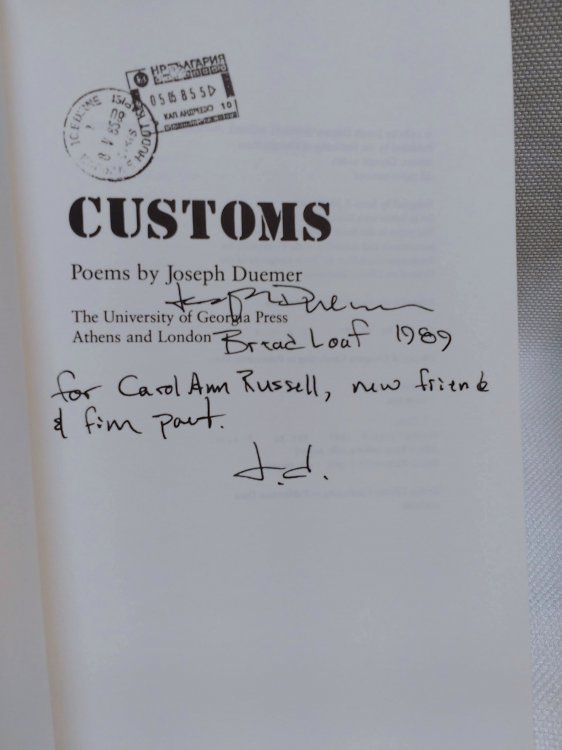 НР БЪЛГАРИЯ
05 05 85 5D
КАП. АНДРЕЕВО 10
CUSTOMS
Poems by Joseph Duemer
Joseph Duemer
The University of Georgia Press
Athens and London
Bread Loaf 1989
for Carol Ann Russell, new friend
& fine poet.
J.d.